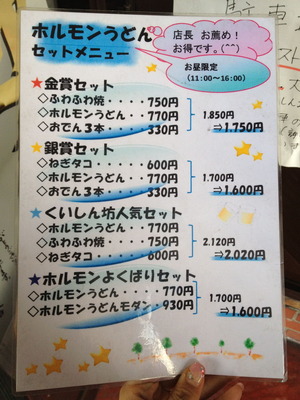 ホルモンうどん
セットメニュー
店長 お薦め！
お得です。(^^)
お昼限定
(11:00～16:00)
★金賞セット
◇ふわふわ焼・・・・750円
◇ホルモンうどん・・770円
◇おでん３本・・・・330円
1.850円
⇒1.750円
★銀賞セット
◇ねぎタコ・・・・・600円
◇ホルモンうどん・・770円
◇おでん３本・・・・330円
1.700円
⇒1.600円
★くいしん坊人気セット
◇ホルモンうどん・・770円
◇ふわふわ焼・・・・750円
◇ねぎタコ・・・・・600円
2.120円
⇒2.020円
★ホルモンよくばりセット
◇ホルモンうどん・・・・770円
◇ホルモンうどんモダン・930円
1.700円
⇒1.600円